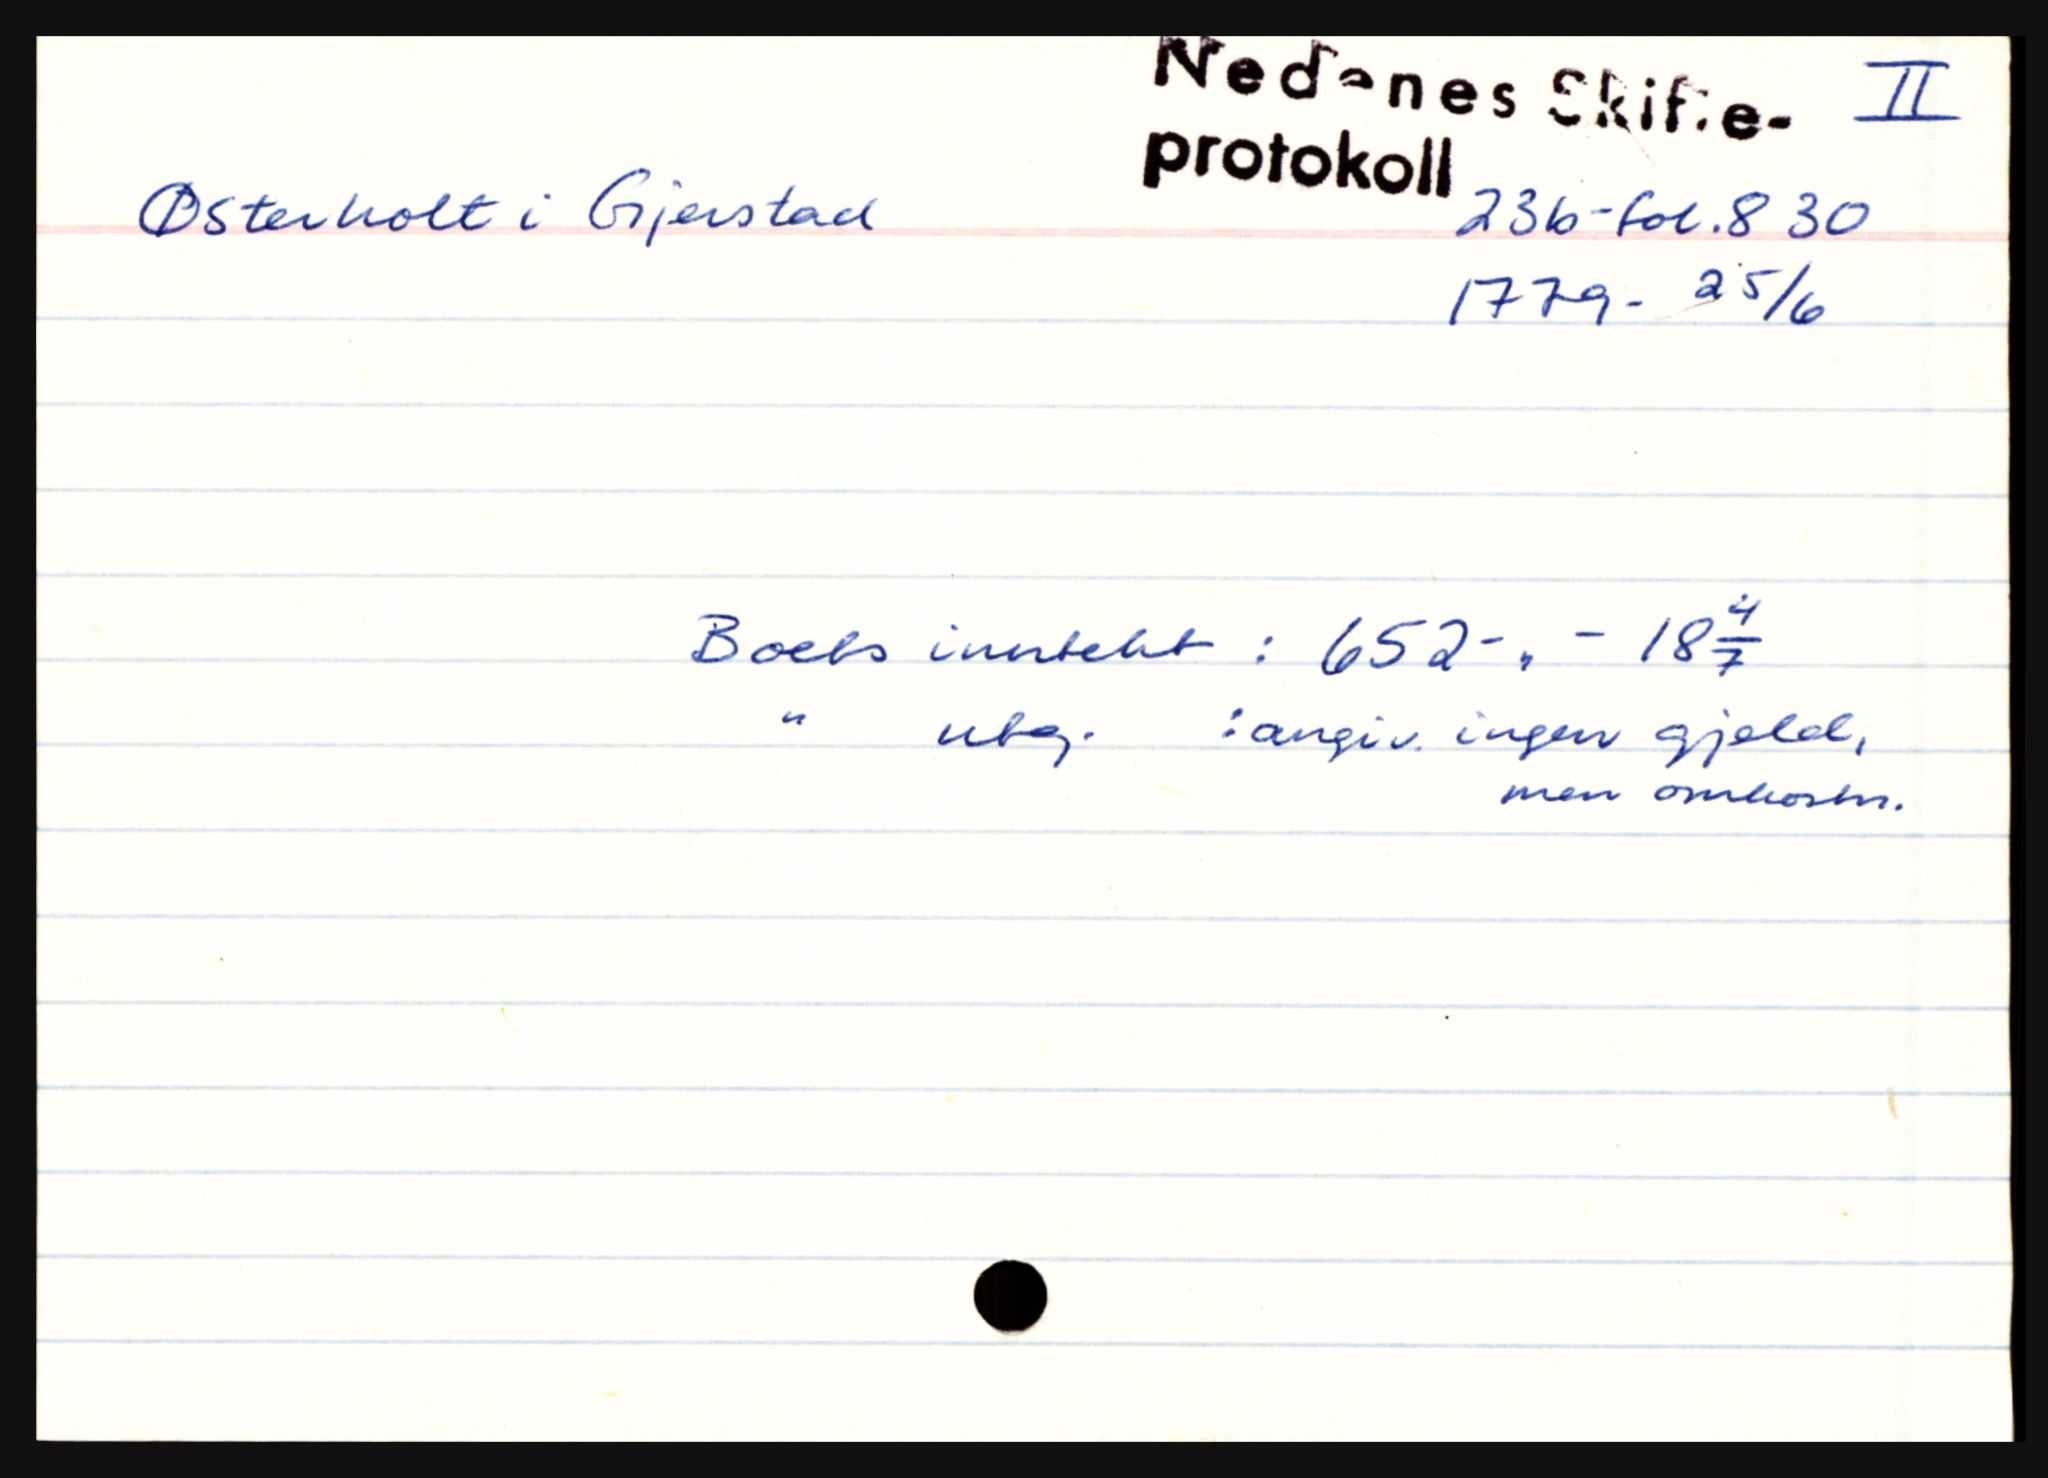 Nedenes Skifte- II
protokoll
Østerholt i Gjerstad 23b-fol.830
1779- 25/6
Boets inntekt : 652-„-18 4/7
" utg. : angiv. ingen gjeld,
men omkostn.